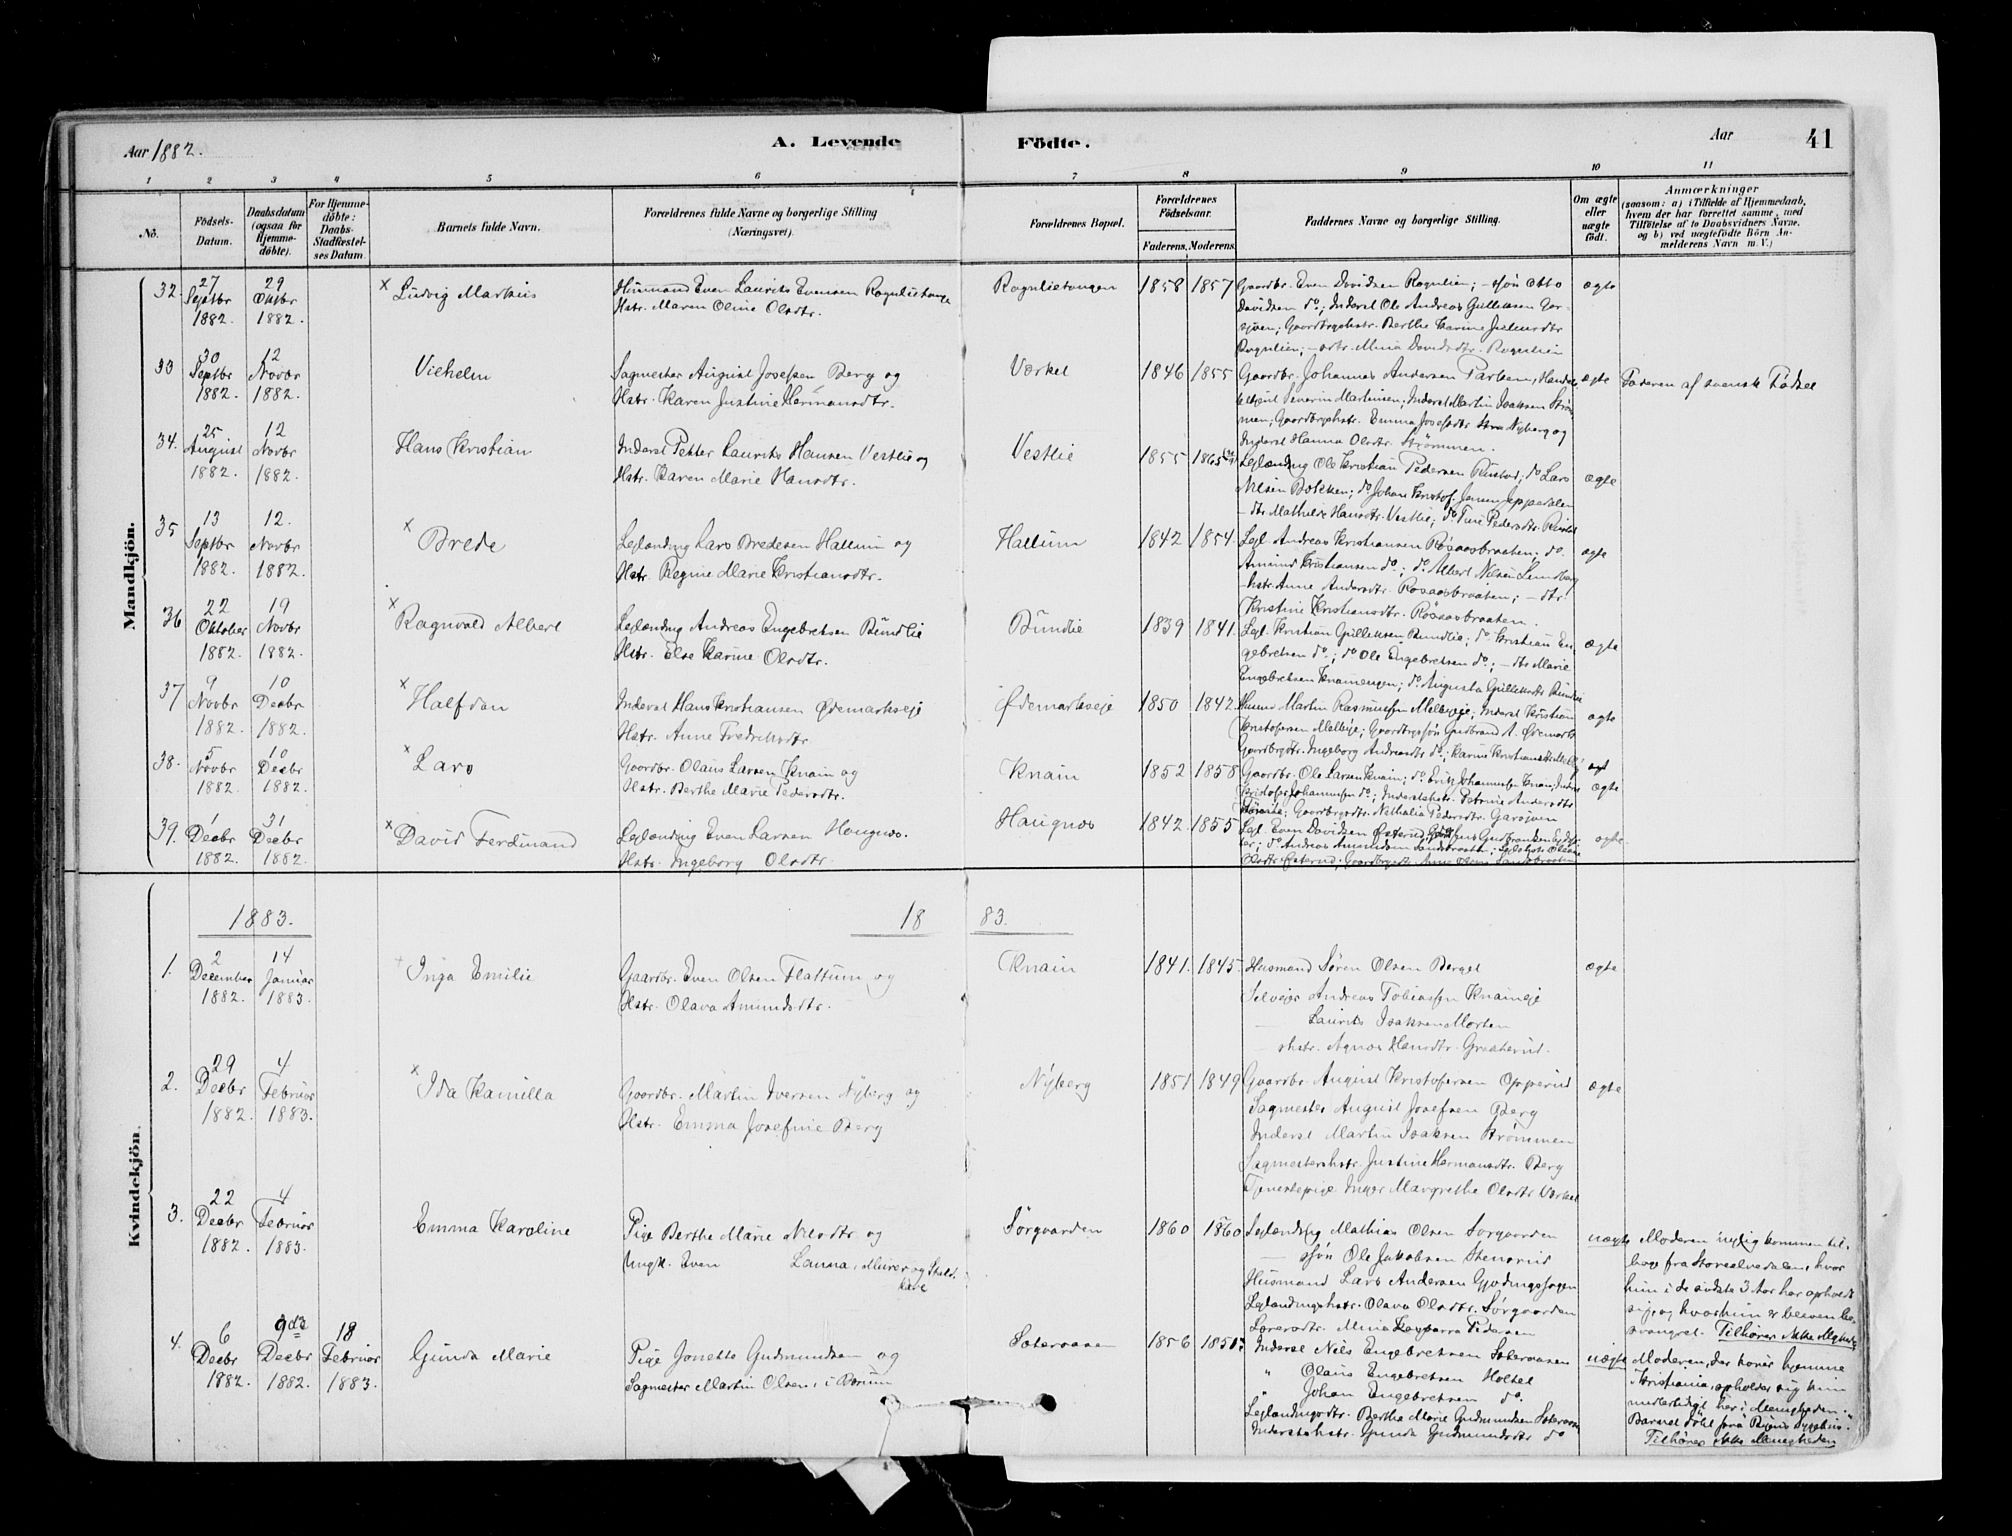 Aar 1882.
A. Levende
Födte.
Aar
41
1 2 3 4 5 6 7 8 9 10 11
No.
Födsels-Datum.
Daabsdatum (ogsaa for Hjemme-døbte).
For Hjemme-døbte: Daabs-Stadfæstel-ses Datum.
Barnets fulde Navn.
Forældrenes fulde Navne og borgerlige Stilling (Næringsvei).
Forældrenes Bopæl.
Forældrenes Födselsaar.
Faderens. Moderens.
Faddernes Navne og borgerlige Stilling.
Om ægte eller uægte födt.
Anmærkninger
(saasom: a) i Tilfælde af Hjemmedaab, hvem der har forrettet samme, med Tilføielse af to Daabsvidners Navne, og b) ved uægtefödte Börn Anmelderens Navn m. V.)
Mandkjön.
32. 27 Septbr 1882. 29 Oktbr 1882. × Ludvig Markus
Husmand Even Laurits Evensen Rognlietangen
Hstr. Maren Oline Olsdtr.
Rognlietangen 1858 1857
Gaardbr. Even Davidsen Rognlien; – søn Otto
Davidsen do; Inderst Ole Andreas Gulliksen
Gaardbrgshstr. Berthe Karine
Rognlien; – dtr. Mina Davidsdtr. Rognlien
ægte
33 30 Septbr 1882. 12 Novbr 1882. Vilhelm
Sagmester August Josefsen Berg og
Hstr. Karen Justine Hermansdtr.
Værket 1846 1855
Gaardbr. Johannes Andersen
Severin Martinsen; Inderst Martin Isaksen Strøm-
men; Gaardbrgshstr. Emma Josefsdtr. Nyberg og
Inderst Hanna Olsdtr. Strømmen.
ægte Faderen af svensk Fødsel
34. 25 August 1882. 12 Novbr 1882. Hans Kristian
Inderst Petter Laurits Hansen Vestlie og
Hstr. Karen Marie Hansdtr.
Vestlie 1855 1865
Leilænding Ole Kristian Pedersen Rustad; do Lars
Nilsen Bækken; do Johan Kristof. Jansen
– dtr. Mathilde Hansdtr. Vestlie; do Pedersdtr.
ægte
35 13 Septbr 1882. 12. Novbr 1882. × Brede
Leilænding Lars Bredesen Hallum og
Hstr. Regine Marie Kristiansdtr.
Hallum 1842 1854.
Leil. Andreas Kristiansen Røsaasbraaten; do.
Amund Kristiansen do; do Albert Nilsen Lundberg
– hstr. Anne Andersdtr. Røsaasbraaten; – dtr.
Kristine Kristiansdtr. Røsaasbraaten.
ægte
36 22 Oktober 1882. 19 Novbr 1882. × Ragnvald Albert
Leilænding Andreas Engebretsen Bundlie
Hstr. Else Karine Olsdtr.
Bundlie 1839 1841.
Leil. Kristian Gulliksen Bundlie; do Kristian En-
gebretsen do; do Ole Engebretsen do; – dtr. Marie
Engebretsen; do Augusta Gulliksdtr. Bundlie
ægte
37 9 Novbr 1882. 10 Decbr 1882. × Halfdan
Inderst Hans Kristiansen Ødemarkseje
Hstr. Anne Fredriksdtr.
Ødemarkseje 1850 1842.
Husmd. Martin Rasmussen Melbyeje; Inderst Kristian
Kristofersen Melbyeje; Gaardbrgssøn Gudbrand A. Ødemark
Gaardbrgsdtr. Ingeborg Andreasdtr. do; Karine Kristiansdtr.
ægte
38. 5 Novbr 1882. 10 Decbr 1882. × Lars
Gaardbr. Olaus Larsen Knain og
Hstr. Berthe Marie Pedersdtr.
Knain 1852 1858
Gaardbr. Ole Larsen Knain; do. Johannessen Knain;
Kristofer Johannessen do; Inderstshstr. Petrine Andersdtr.
Gaardbrgsdtr. Nathalia Pedersdtr. Garsjøen
ægte
39. 1 Decbr 1882. 31 Decbr 1882. × David Ferdinand
Leilænding Even Larsen Haugnæs.
Hstr. Ingeborg Olsdtr.
Haugnæs 1842. 1855
Leil. Even Davidsen Østerud,
do Andreas Amundsen
Olsdtr. Østerud; Gaardbrgsdtr. Anne
ægte
Kvindekjön.
1883. 18 83.
1. 2 December 1882. 14 Januar 1883. Inga Emilie
Gaardbr. Even Olsen Flattum og
Hstr. Olava Amundsdtr.
Knain 1841. 1845.
Husmand Søren Olsen Berget
Selvejer Andreas Tobiassen Knaineje
Laurits Isaksen Morten
– hstr. Agnes Hansdtr.
ægte
2. 29 Decbr 1882. 4 Februar 1883. × Ida Kamilla
Gaardbr. Martin Iversen Nyberg og
Hstr. Emma Josefine Berg
Nyberg 1851 1849
Gaardbr. August Kristofersen Opperud
Sagmester August Josefsen Berg
Inderst Martin Isaksen Strømmen
Sagmestershstr. Justine Hermansdtr. Berg
Tjenestepige Inger Margrethe Olsdtr. Værket
ægte
3. 22 Decbr 1882. 4 Februar 1883. Emma Karoline
Pige Berthe Marie Nilsdtr og
Ungk. Even Lanna, Murer og
Sørgaarden 1860 1860
Leilænding Mathias Olsen Sørgaarden
– søn Ole Jakobsen Stensrud
Husmand Lars Andersen
Leilændingshstr. Olava Olsdtr. Sørgaarden
Lærersdtr. Mina Pedersen
uægte Moderen nylig kommen til-
bage fra Storeelvedalen, hvor
hun i de sidste 3 Aar har opholdt
sig, og hvor hun er bleven be-
svangret. Tilhører ikke Mghed.
4. 6 Decbr 1882. 9de Decbr 1882. 18 Februar 1883. Gunda Marie
Pige Jonette Gudmundsen og
Sagmester Martin Olsen, i Bærum
Sæteraasen 1856 1850?
Inderst Nils Engebretsen Sæteraasen
" Olaus Engebretsen Holtet
" Johan Engebretsen do.
Leilændingsdtr. Berthe Marie Gudmundsen Sæteraasen
Inderstshstr. Gunda Gudmundsdtr do
uægte Moderen, der hører hjemme
i Kristiania, opholder sig kun
midlertidigt her i Menigheden.
Barnet døbt paa Byens Sygehus.
Tilhører ikke Menigheden